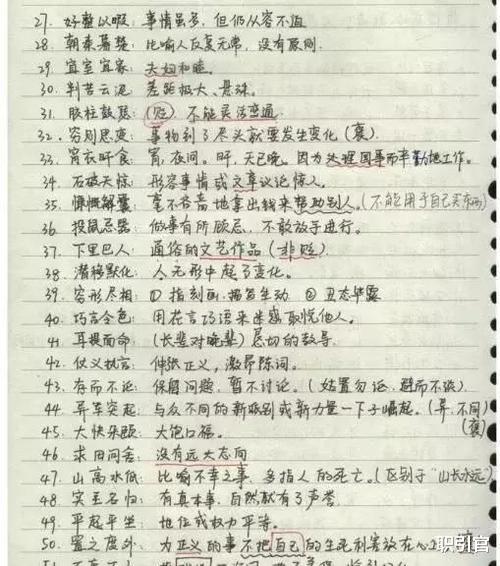 27. 好整以暇：事情虽多，但仍从容不迫
28. 朝秦暮楚：比喻人反复无常，没有原则。
29. 宜室宜家：夫妇和睦。
30. 判若云泥：差距极大、悬殊。
31. 胶柱鼓瑟：(贬) 不能灵活变通
32. 穷则思变：事物到了尽头就要发生变化（褒）
33. 宵衣旰食：宵，夜间。旰，天已晚。因为处理国事而辛勤地工作。
34. 石破天惊：形容事情或文章议论惊人。
35. 慷慨解囊：毫不吝啬地拿出钱来帮助别人。（不能用于自己买东西）
36. 投鼠忌器：做事有所顾忌，不敢放手进行。
37. 下里巴人：通俗的文艺作品（非贬）
38. 潜移默化：人无形中起了变化。
39. 穷形尽相：① 指刻画、描写生动 ② 丑态毕露
40. 巧言令色：用花言巧语来迷惑取悦他人。
41. 耳提面命：（长辈对晚辈）恳切的教导。
42. 仗义执言：伸张正义，激昂陈词。
43. 存而不论：保留问题，暂不讨论。（姑置勿论，避而不谈）
44. 异军突起：与众不同的新派别或新力量一下子崛起。（异：不同）（褒）
45. 大快朵颐：大饱口福。
46. 求田问舍：没有远大志向
47. 山高水低：比喻不幸之事，多指人的死亡。（区别于“山长水远”）
48. 实至名归：有真本事，自然就有了声誉。
49. 平起平坐：地位或权力平等。
50. 置之度外：为正义的事不把自己的生死利害放在心上
职引官